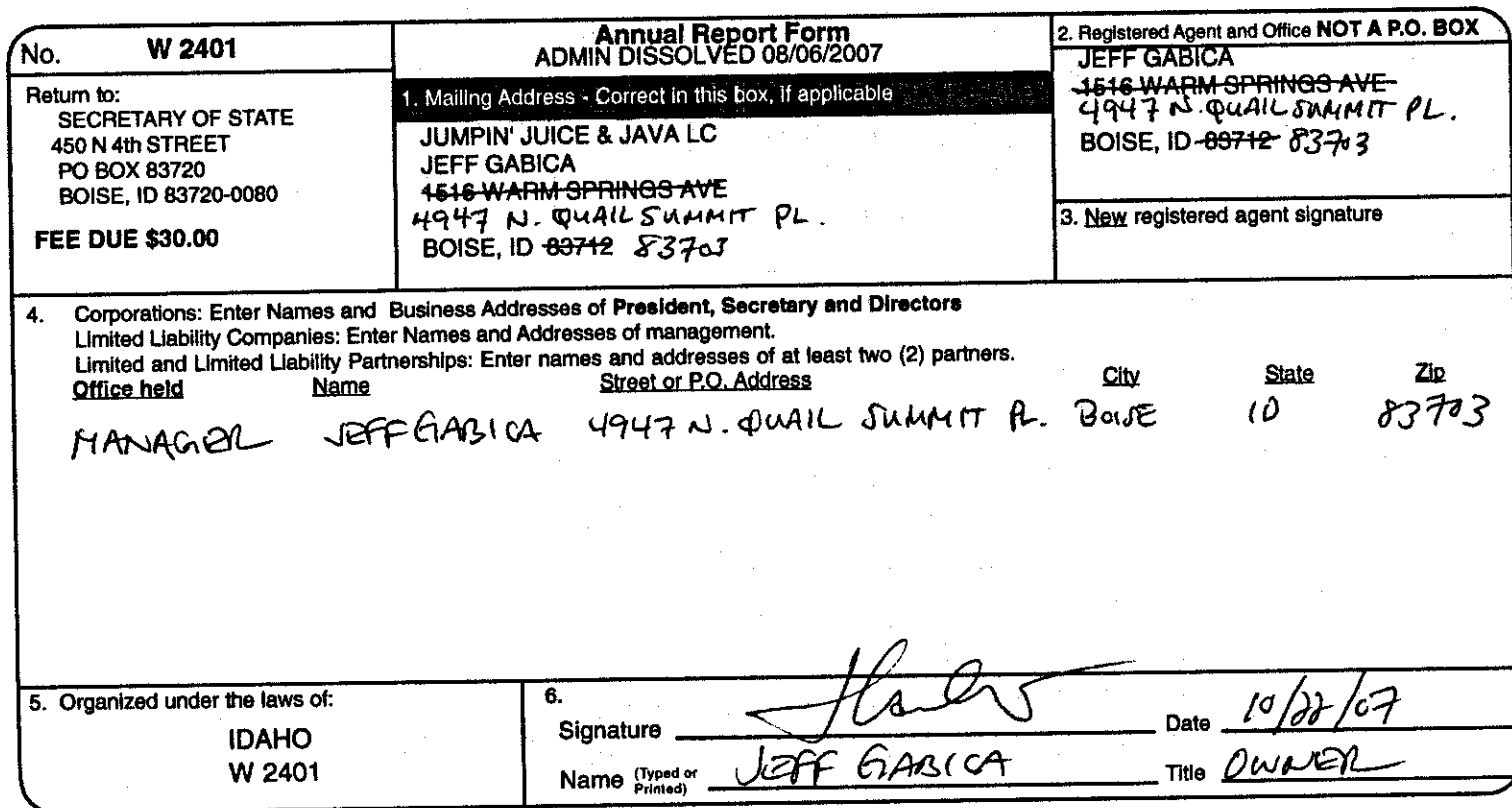 No. W 2401
Return to:
SECRETARY OF STATE
450 N 4th STREET
PO BOX 83720
BOISE, ID 83720-0080
FEE DUE $30.00
Annual Report Form
ADMIN DISSOLVED 08/06/2007
1. Mailing Address - Correct in this box, if applicable
JUMPIN' JUICE & JAVA LC
JEFF GABICA
1516 WARM SPRINGS AVE
4947 N. QUAIL SUMMIT PL.
BOISE, ID 83712 83703
2. Registered Agent and Office NOT A P.O. BOX
JEFF GABICA
1516 WARM SPRINGS AVE
4947 N. QUAIL SUMMIT PL.
BOISE, ID 83712 83703
3. New registered agent signature
4. Corporations: Enter Names and Business Addresses of President, Secretary and Directors
Limited Liability Companies: Enter Names and Addresses of management.
Limited and Limited Liability Partnerships: Enter names and addresses of at least two (2) partners.
Office held Name Street or P.O. Address City State Zip
MANAGER JEFF GABICA 4947 N. QUAIL SUMMIT PL. BOISE ID 83703
5. Organized under the laws of:
IDAHO
W 2401
6.
Signature Date 10/22/07
Name (Typed or Printed) JEFF GABICA Title OWNER